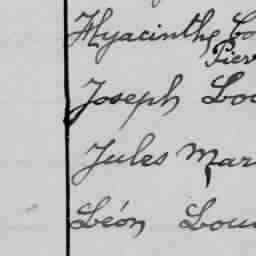 Hyacinthe Co
Pier
Joseph Lou
Jules Mar
Léon Loui